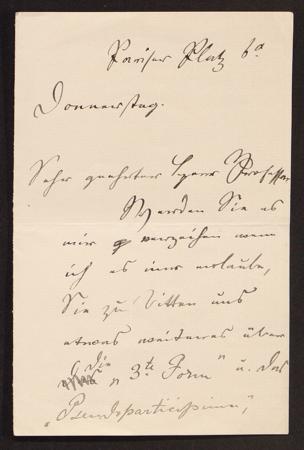 Pariser Platz 6a
Donnerstag.
Sehr geehrter Herr Professor
Werden Sie es
mir verzeihen wenn
ich es mir erlaube,
Sie zu bitten uns
etwas weiteres über
die „3te Form" u. das
„Pseudoparticipium",